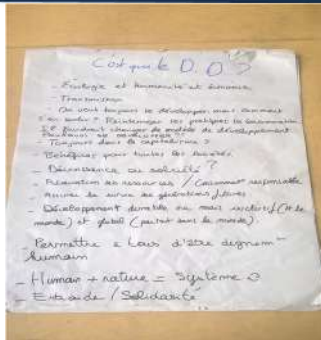 C'est quoi le D.D ?
- Écologie et humanité et économie
- Transmission
- On veut toujours se développer mais comment
s'en sortir ? Réinterroger les pratiques de consommation
Il faudrait changer de modèle de développement
- Toujours dans le capitalisme ?
- Bénéfique pour toutes les sociétés
- Décroissance ou sobriété ?
- Préservation des ressources / Consommer responsable
Assurer la survie des générations futures
- Développement durable au mais (et le
monde) et global (partout dans le monde).
- Permettre à tous d'être dignement
humain
- Humain + nature = Système
- Entraide / Solidarité